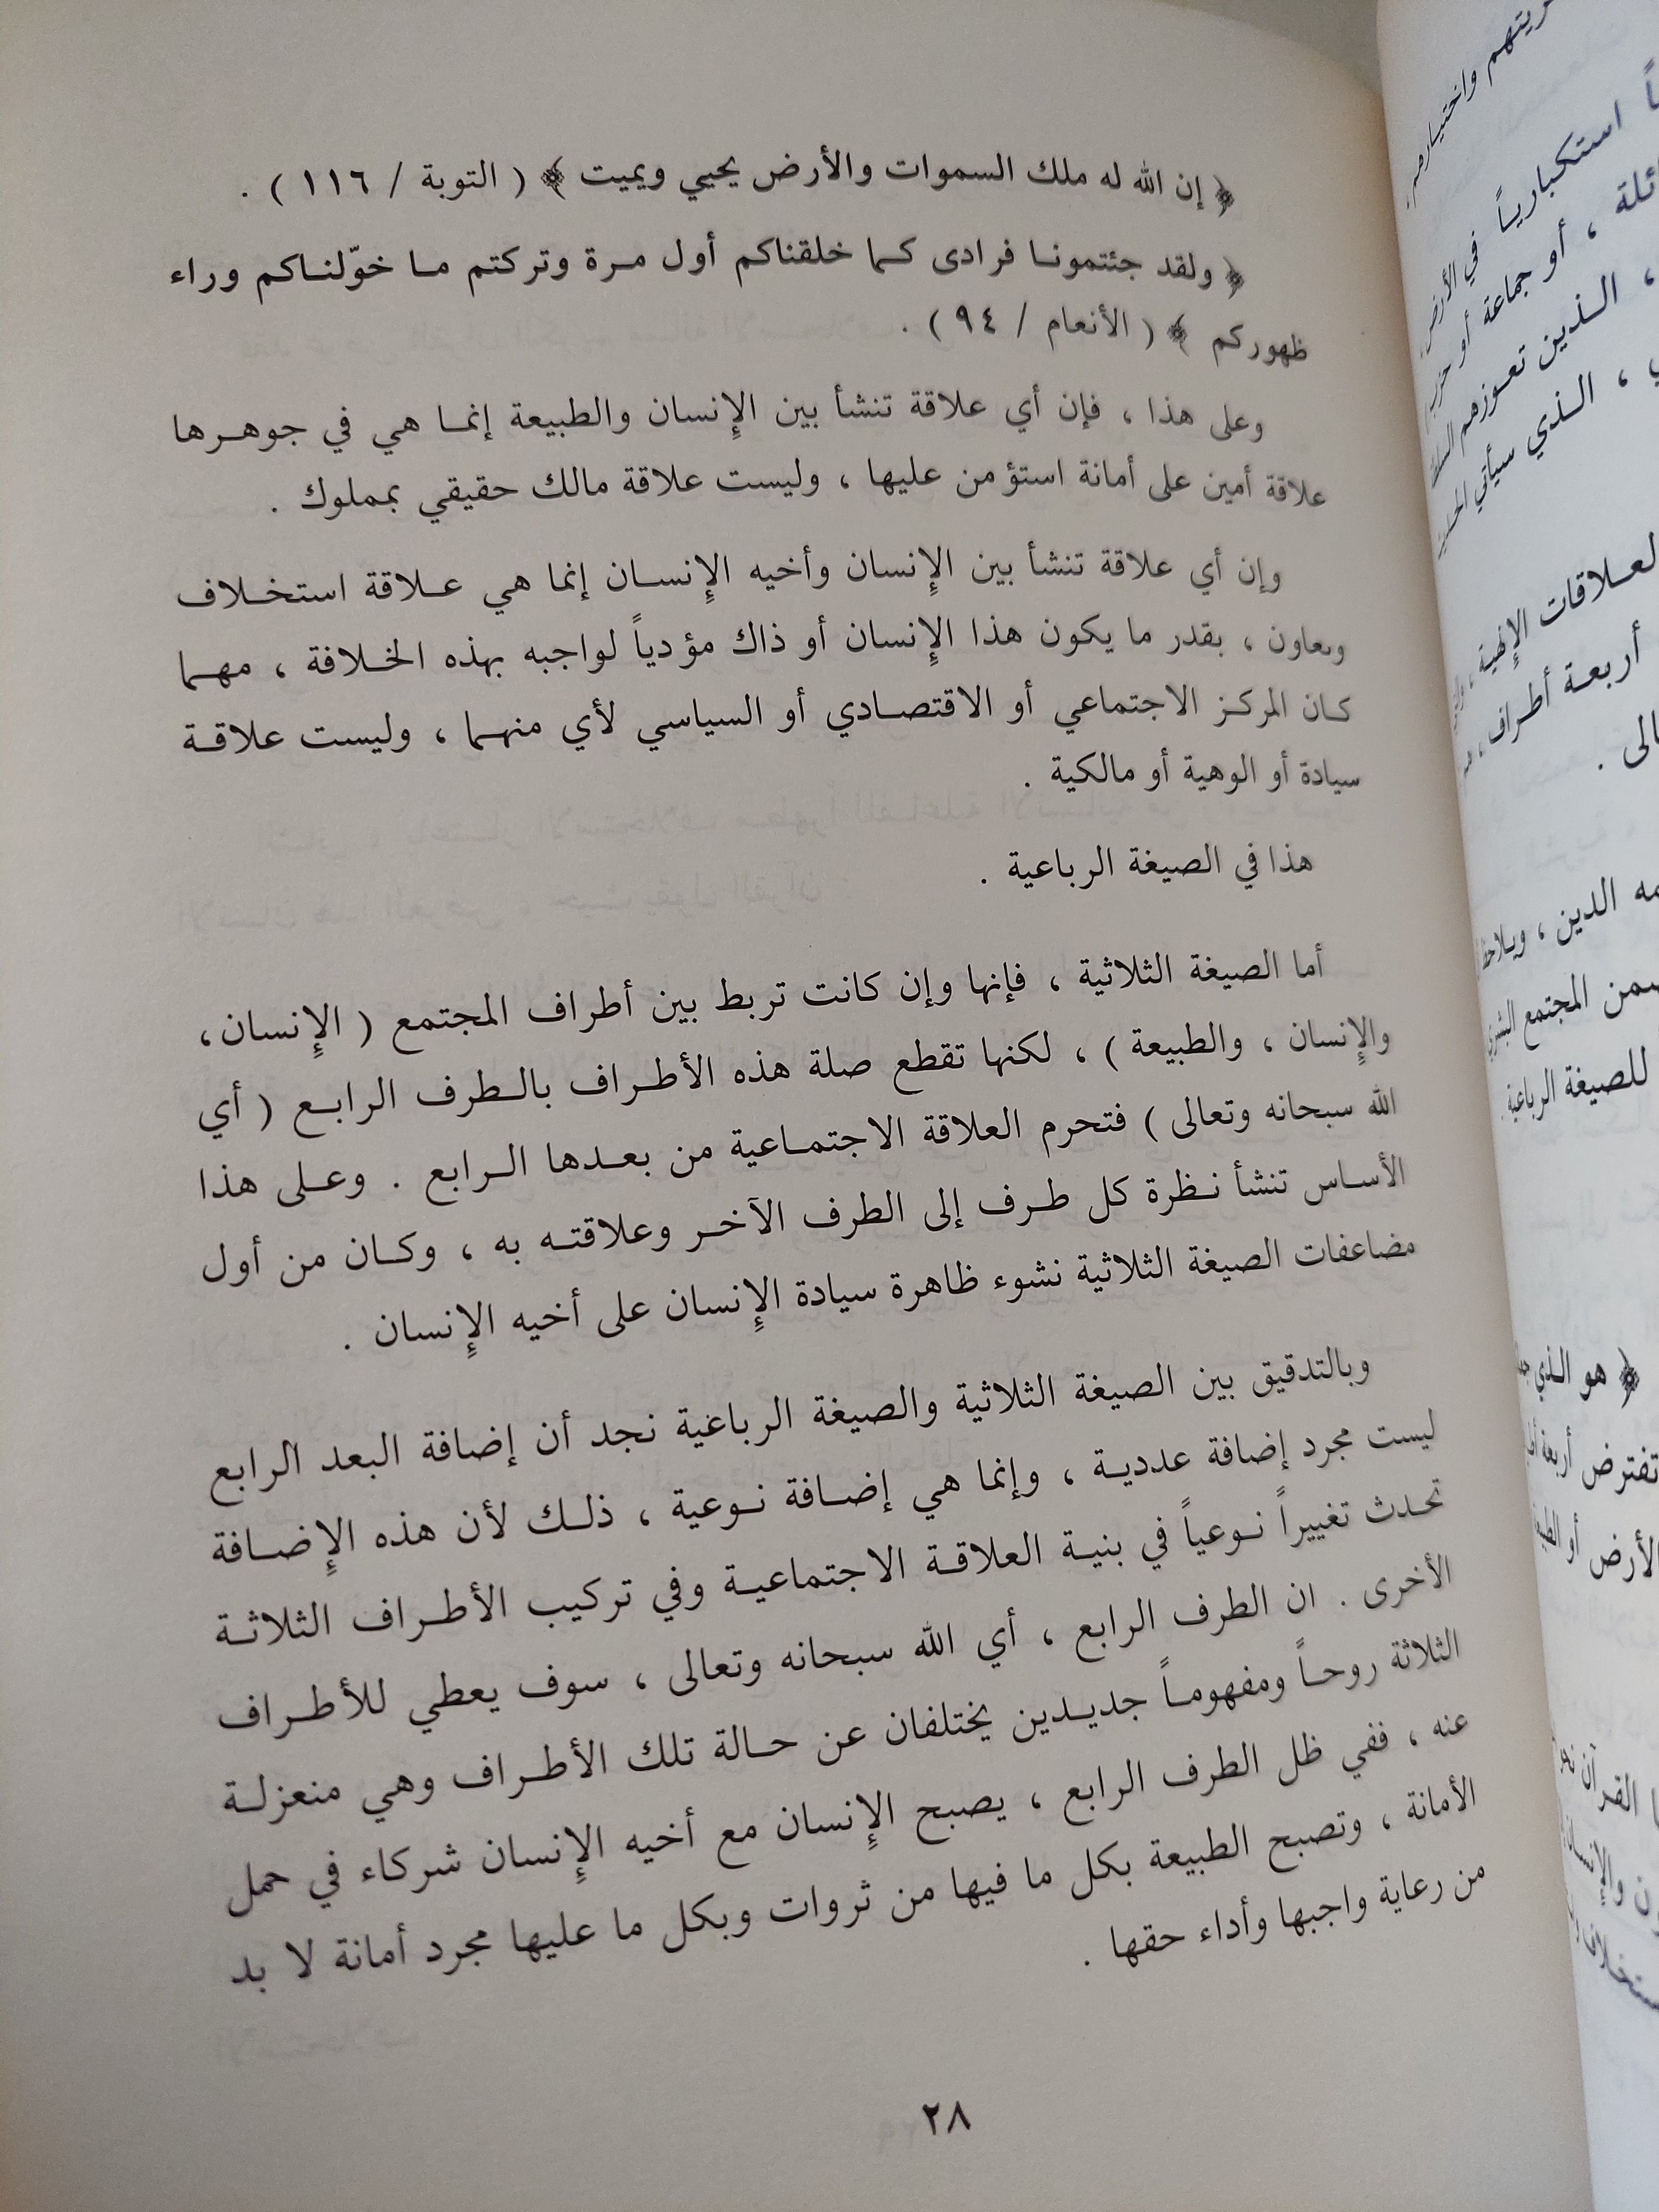 ﴿ إن الله له ملك السموات والأرض يحيي ويميت ﴾ ( التوبة / ١١٦ ) .
﴿ ولقد جئتمونا فرادى كما خلقناكم أول مرة وتركتم ما خوّلناكم وراء
ظهوركم ﴾ ( الأنعام / ٩٤ ) .
وعلى هذا ، فإن أي علاقة تنشأ بين الإِنسان والطبيعة إنما هي في جوهرها
علاقة أمين على أمانة استؤمن عليها ، وليست علاقة مالك حقيقي بمملوك .
وإن أي علاقة تنشأ بين الإِنسان وأخيه الإِنسان إنما هي علاقة استخلاف
وتعاون ، بقدر ما يكون هذا الإِنسان أو ذاك مؤدياً لواجبه بهذه الخلافة ، مهما
كان المركز الاجتماعي أو الاقتصادي أو السياسي لأي منهما ، وليست علاقة
سيادة أو الوهية أو مالكية .
هذا في الصيغة الرباعية .
أما الصيغة الثلاثية ، فإنها وإن كانت تربط بين أطراف المجتمع ( الإِنسان ،
والإِنسان ، والطبيعة ) ، لكنها تقطع صلة هذه الأطراف بالطرف الرابع ( أي
الله سبحانه وتعالى ) فتحرم العلاقة الاجتماعية من بعدها الرابع . وعلى هذا
الأساس تنشأ نظرة كل طرف إلى الطرف الآخر وعلاقته به ، وكان من أول
مضاعفات الصيغة الثلاثية نشوء ظاهرة سيادة الإِنسان على أخيه الإِنسان .
وبالتدقيق بين الصيغة الثلاثية والصيغة الرباعية نجد أن إضافة البعد الرابع
ليست مجرد إضافة عددية ، وإنما هي إضافة نوعية ، ذلك لأن هذه الإِضافة
تحدث تغييراً نوعياً في بنية العلاقة الاجتماعية وفي تركيب الأطراف الثلاثة
الأخرى . ان الطرف الرابع ، أي الله سبحانه وتعالى ، سوف يعطي للأطراف
الثلاثة روحاً ومفهوماً جديدين يختلفان عن حالة تلك الأطراف وهي منعزلة
عنه ، ففي ظل الطرف الرابع ، يصبح الإِنسان مع أخيه الإِنسان شركاء في حمل
الأمانة ، وتصبح الطبيعة بكل ما فيها من ثروات وبكل ما عليها مجرد أمانة لا بد
من رعاية واجبها وأداء حقها .
٢٨
واختيارهم
استكبارياً في الأرض
، أو جماعة أو حزب
، الذين تعوزهم
، الذي سيأتي
العلاقات الإِلهية ،
أربعة أطراف ،
الدين ،
المجتمع
للصيغة الرباعية
﴿ هو الذي
تفترض أربعة
الأرض أو
القرآن